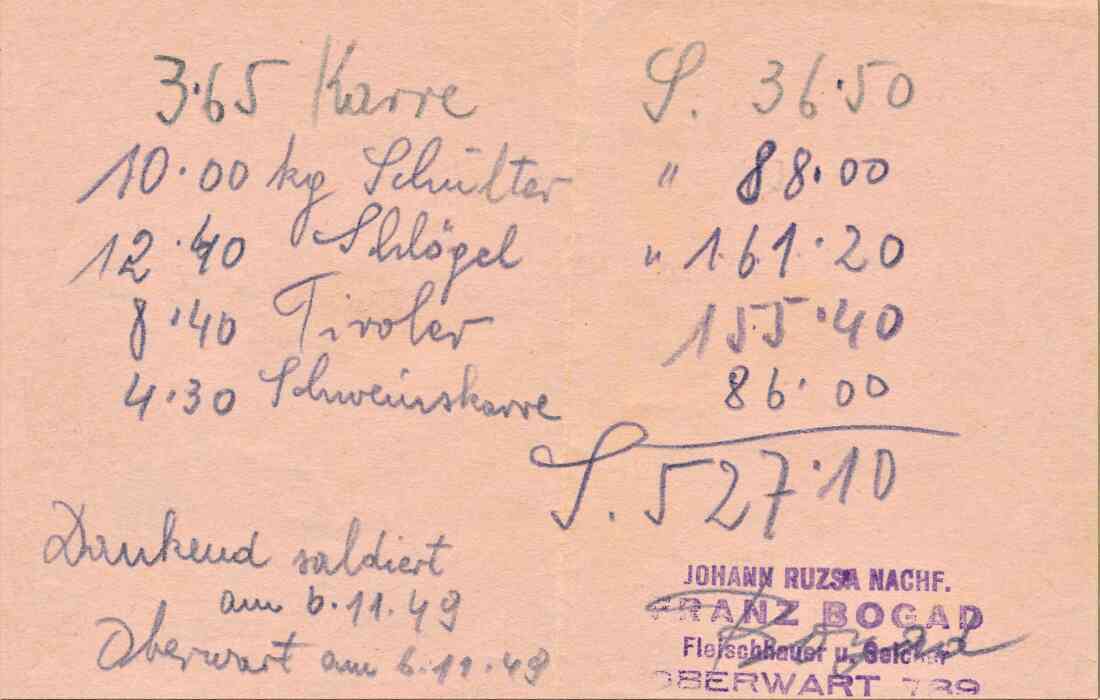 3.65 Karre S. 36.50
10.00 kg Schulter " 88.00
12.40 Schlögel " 161.20
8.40 Tiroler 155.40
4.30 Schweinskarre 86.00
S. 527.10
Dankend saldiert
am 6.11.49
Oberwart am 6.11.49
JOHANN RUZSA NACHF.
FRANZ BOGAD
Fleischhauer u. Selcher
OBERWART 789
Bogad